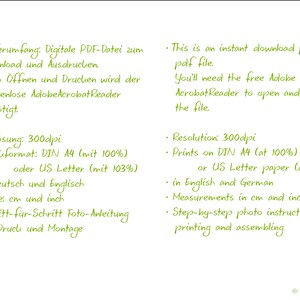 Digitale PDF-Datei zum
und Ausdrucken.
Öffnen und Drucken wird der
AdobeAcrobatReader
300dpi
DIN A4 (mit 100%)
oder US Letter (mit 103%)
und Englisch
cm und inch
Foto-Anleitung
und Montage
• This is an instant download
pdf file.
You'll need the free Adobe
AcrobatReader to open and
the file.
• Resolution: 300dpi
• Prints on DIN A4 (at 100%)
or US Letter paper
• in English and German
• Measurements in cm and
• Step-by-step photo
printing and assembling
©